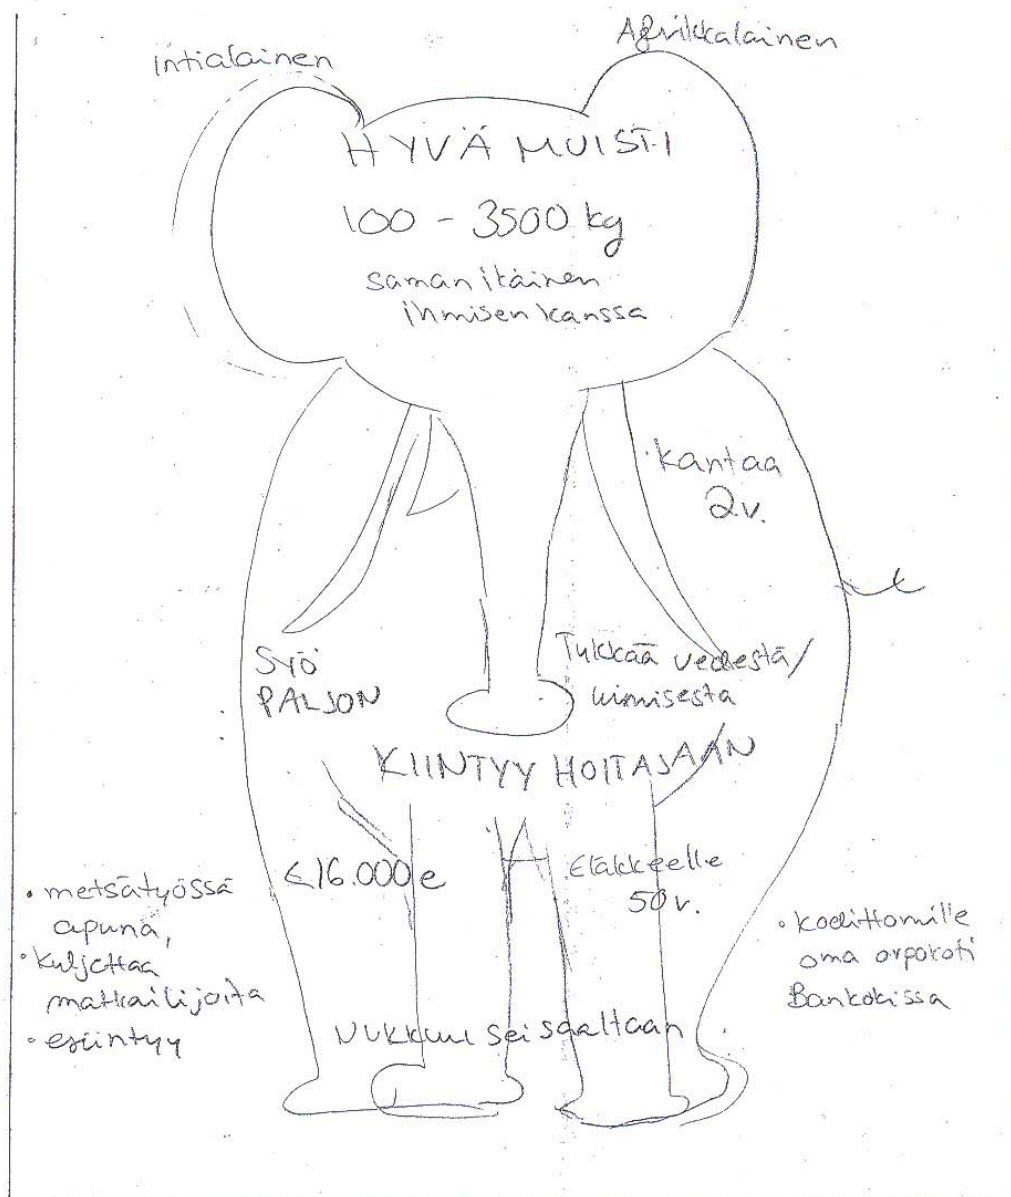 intialainen
Afrikkalainen
HYVÄ MUISTI
100 - 3500 kg
saman ikäinen
ihmisen kanssa
kantaa
2v.
SYÖ
PALJON
Tykkää vedestä/
uimisesta
KIINTYY HOITAJAAN
<16.000e
Eläkkeelle
50v.
• metsätyössä
apuna,
• kuljettaa
matkailijoita
• esiintyy
• kodittomille
oma orpokoti
Bankokissa
Nukkuu seisaaltaan